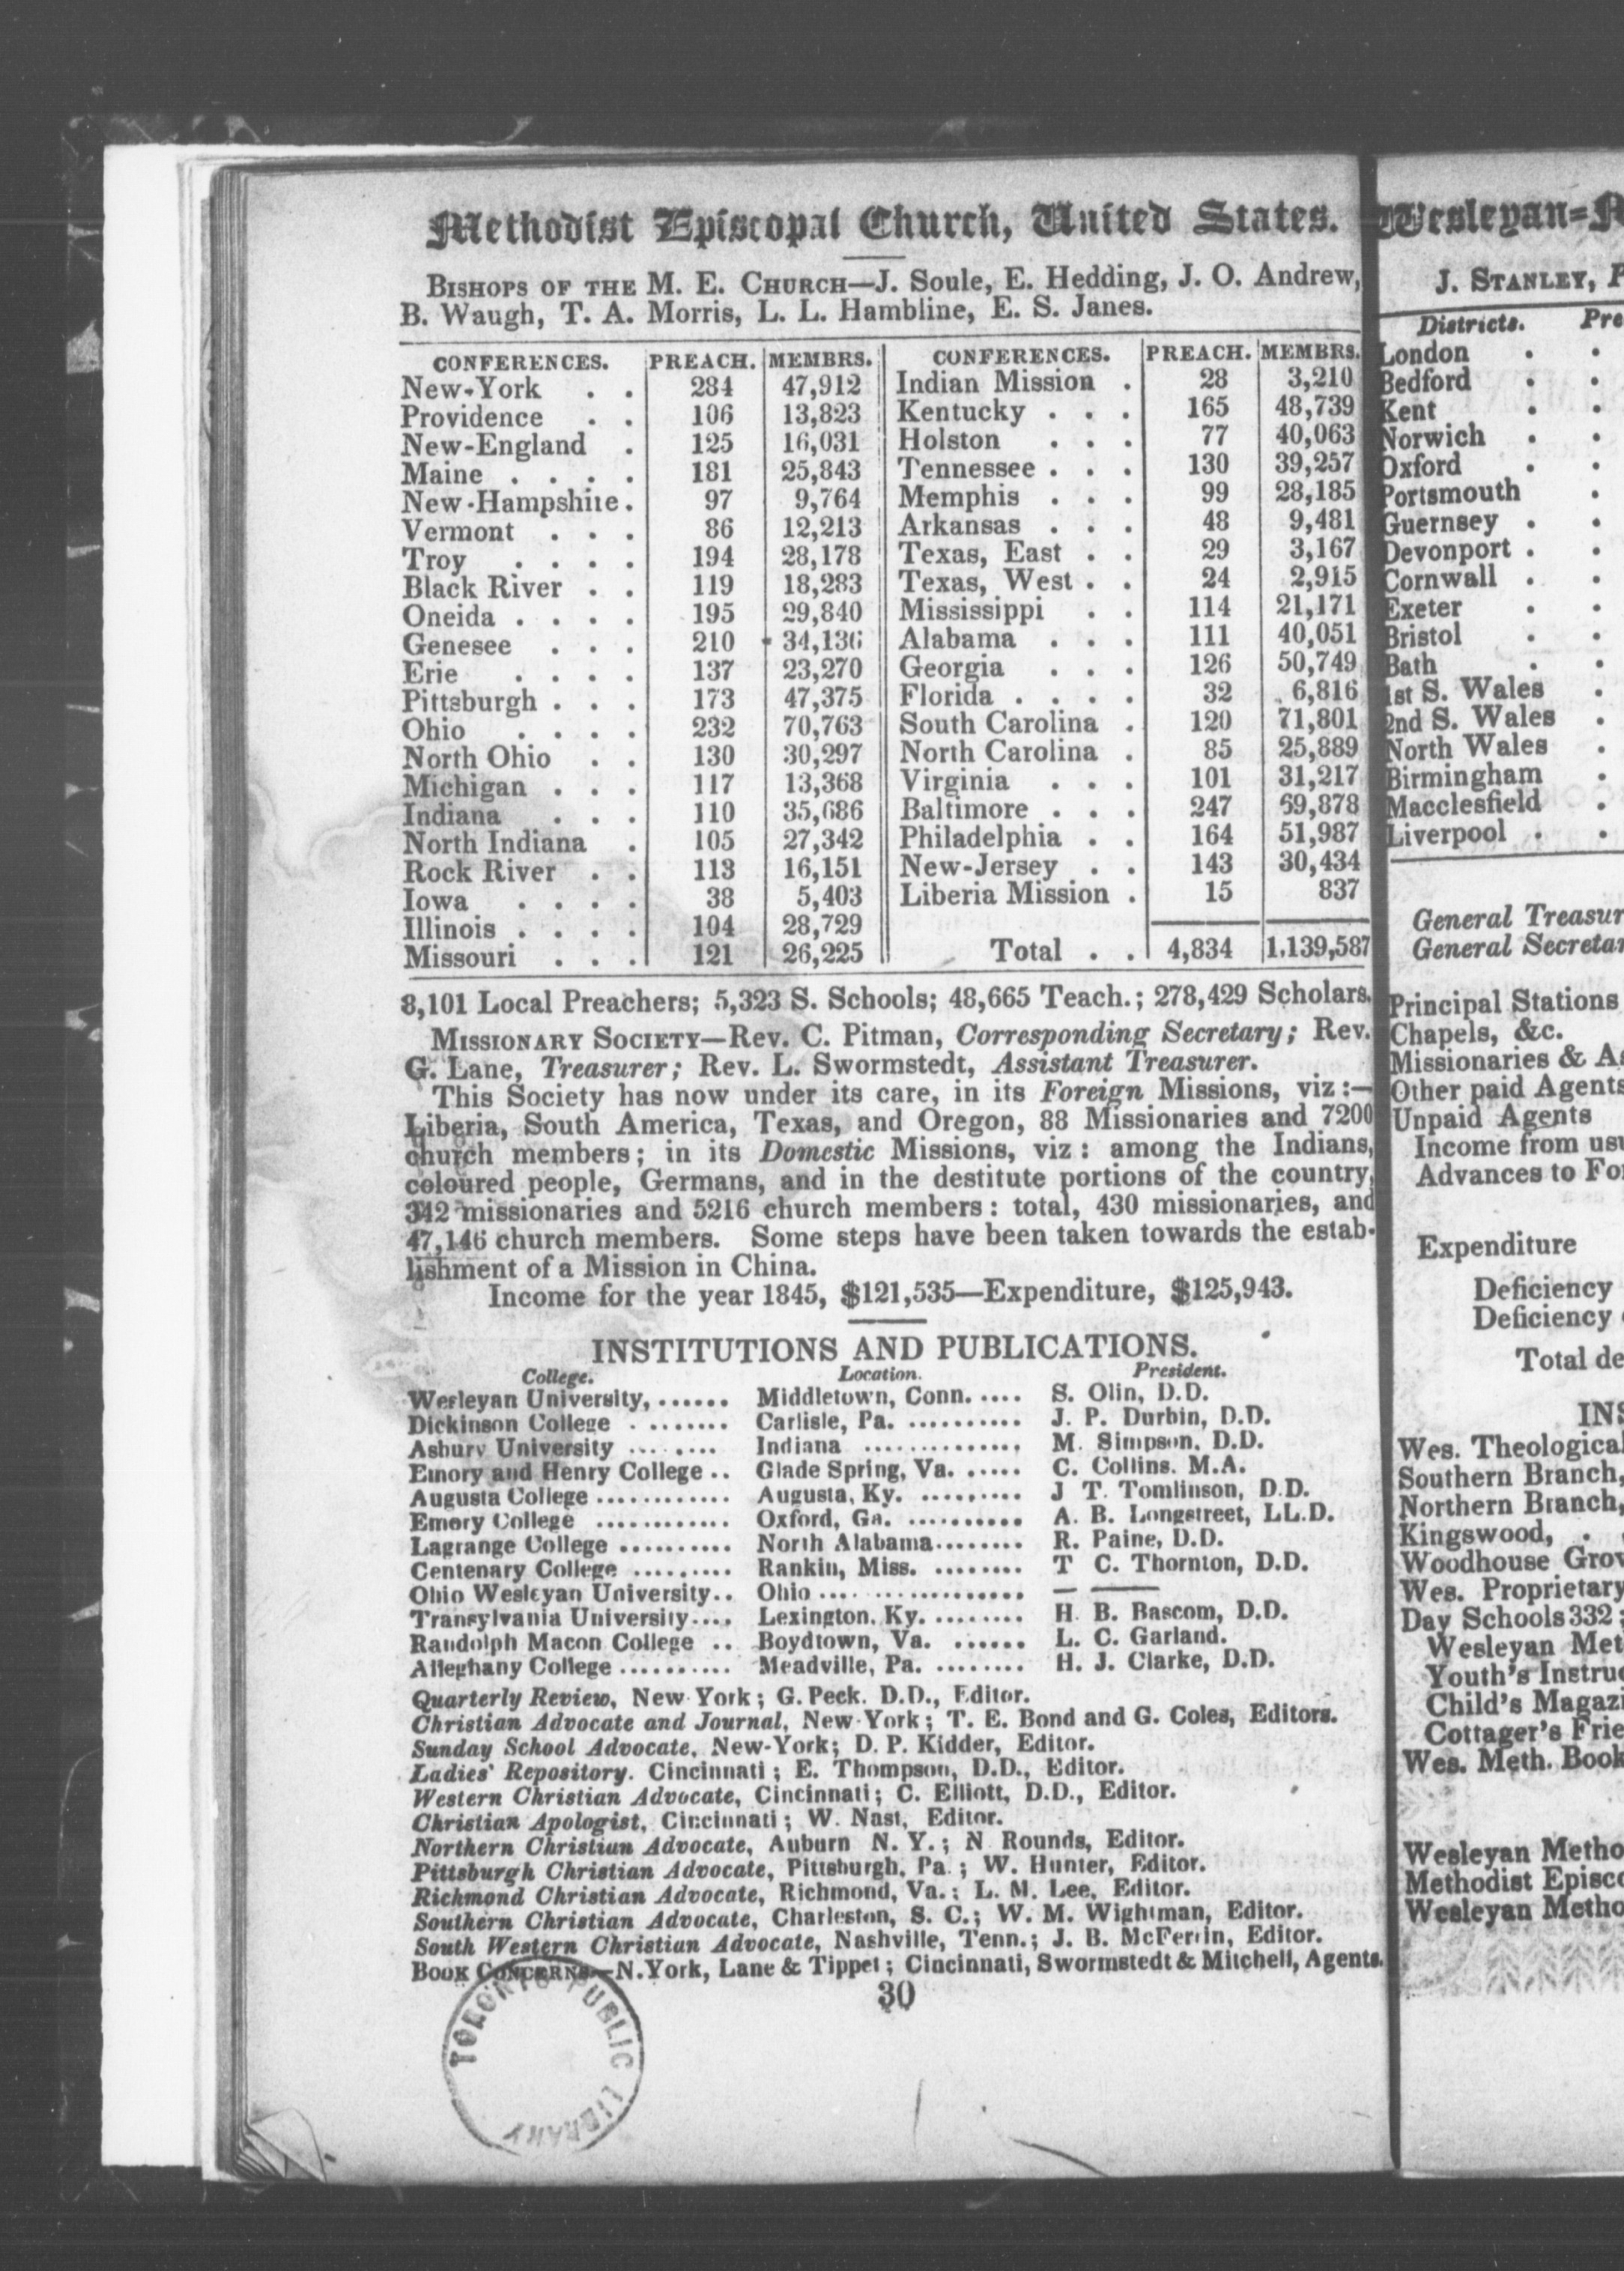 Methodist Episcopal Church, United States.
BISHOPS OF THE M. E. CHURCH—J. Soule, E. Hedding, J. O. Andrew,
B. Waugh, T. A. Morris, L. L. Hambline, E. S. Janes.
CONFERENCES. PREACH. MEMBRS.
New-York . . 284 47,912
Providence . . 106 13,823
New-England . 125 16,031
Maine . . . . 181 25,843
New-Hampshire . 97 9,764
Vermont . . . 86 12,213
Troy . . . . 194 28,178
Black River . . 119 18,283
Oneida . . . . 195 29,840
Genesee . . . 210 34,136
Erie . . . . 137 23,270
Pittsburgh . . . 173 47,375
Ohio . . . . 232 70,763
North Ohio . . 130 30,297
Michigan . . . 117 13,368
Indiana . . . 110 35,686
North Indiana . 105 27,342
Rock River . . 113 16,151
Iowa . . . . 38 5,403
Illinois . . . . 104 28,729
Missouri . . . 121 26,225
CONFERENCES. PREACH. MEMBRS.
Indian Mission . 28 3,210
Kentucky . . . 165 48,739
Holston . . . 77 40,063
Tennessee . . . 130 39,257
Memphis . . . 99 28,185
Arkansas . . . 48 9,481
Texas, East . . 29 3,167
Texas, West . . 24 2,915
Mississippi . . 114 21,171
Alabama . . . 111 40,051
Georgia . . . 126 50,749
Florida . . . . 32 6,816
South Carolina . 120 71,801
North Carolina . 85 25,889
Virginia . . . 101 31,217
Baltimore . . . 247 69,878
Philadelphia . . 164 51,987
New-Jersey . . 143 30,434
Liberia Mission . 15 837
Total . . 4,834 1,139,587
8,101 Local Preachers; 5,323 S. Schools; 48,665 Teach.; 278,429 Scholars.
MISSIONARY SOCIETY—Rev. C. Pitman, Corresponding Secretary; Rev.
G. Lane, Treasurer; Rev. L. Swormstedt, Assistant Treasurer.
This Society has now under its care, in its Foreign Missions, viz:—
Liberia, South America, Texas, and Oregon, 88 Missionaries and 7200
church members; in its Domestic Missions, viz: among the Indians,
coloured people, Germans, and in the destitute portions of the country,
342 missionaries and 5216 church members: total, 430 missionaries, and
47,146 church members. Some steps have been taken towards the estab-
lishment of a Mission in China.
Income for the year 1845, $121,535—Expenditure, $125,943.
INSTITUTIONS AND PUBLICATIONS.
College. Location. President.
Wesleyan University, ...... Middletown, Conn. .... S. Olin, D.D.
Dickinson College ........ Carlisle, Pa. .......... J. P. Durbin, D.D.
Asbury University ........ Indiana .............. M. Simpson, D.D.
Emory and Henry College .. Glade Spring, Va. ..... C. Collins, M.A.
Augusta College ............ Augusta, Ky. ......... J T. Tomlinson, D.D.
Emory College ............ Oxford, Ga. .......... A. B. Longstreet, LL.D.
Lagrange College .......... North Alabama........ R. Paine, D.D.
Centenary College ......... Rankin, Miss. ........ T C. Thornton, D.D.
Ohio Wesleyan University.. Ohio .................. — ——
Transylvania University.... Lexington, Ky. ........ H. B. Bascom, D.D.
Randolph Macon College .. Boydtown, Va. ...... L. C. Garland.
Alleghany College .......... Meadville, Pa. ........ H. J. Clarke, D.D.
Quarterly Review, New York; G. Peck, D.D., Editor.
Christian Advocate and Journal, New-York; T. E. Bond and G. Coles, Editors.
Sunday School Advocate, New-York; D. P. Kidder, Editor.
Ladies' Repository. Cincinnati; E. Thompson, D.D., Editor.
Western Christian Advocate, Cincinnati; C. Elliott, D.D., Editor.
Christian Apologist, Cincinnati; W. Nast, Editor.
Northern Christian Advocate, Auburn N. Y.; N Rounds, Editor.
Pittsburgh Christian Advocate, Pittsburgh, Pa.; W. Hunter, Editor.
Richmond Christian Advocate, Richmond, Va.; L. M. Lee, Editor.
Southern Christian Advocate, Charleston, S. C.; W. M. Wightman, Editor.
South Western Christian Advocate, Nashville, Tenn.; J. B. McFerrin, Editor.
BOOK CONCERNS—N. York, Lane & Tippet; Cincinnati, Swormstedt & Mitchell, Agents.
30
TORONTO PUBLIC LIBRARY
Wesleyan=
J. STANLEY,
Districts.
London . .
Bedford . .
Kent . .
Norwich . .
Oxford . .
Portsmouth .
Guernsey . .
Devonport . .
Cornwall . .
Exeter . .
Bristol . .
Bath . .
1st S. Wales .
2nd S. Wales .
North Wales .
Birmingham .
Macclesfield .
Liverpool . .
General
General
Principal Stations
Chapels, &c.
Missionaries &
Other paid Agents
Unpaid Agents
Income from
Advances to
Expenditure
Deficiency
Deficiency
Total
Wes. Theological
Southern Branch,
Northern Branch,
Kingswood, .
Woodhouse
Wes. Proprietary
Day Schools 332;
Wesleyan
Youth's
Child's
Cottager's
Wes. Meth. Book
Wesleyan
Methodist
Wesleyan